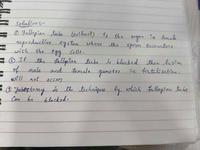 Solutions-
① Fallopian tube (oviduct) is the organ in female
reproductive system where the sperm encounters
with the egg cells.
② If the fallopian tube is blocked then fusion
of male and female gametes i.e fertilisation
will not occur.
③ Tubectomy is the technique by which fallopian tube
can be blocked.